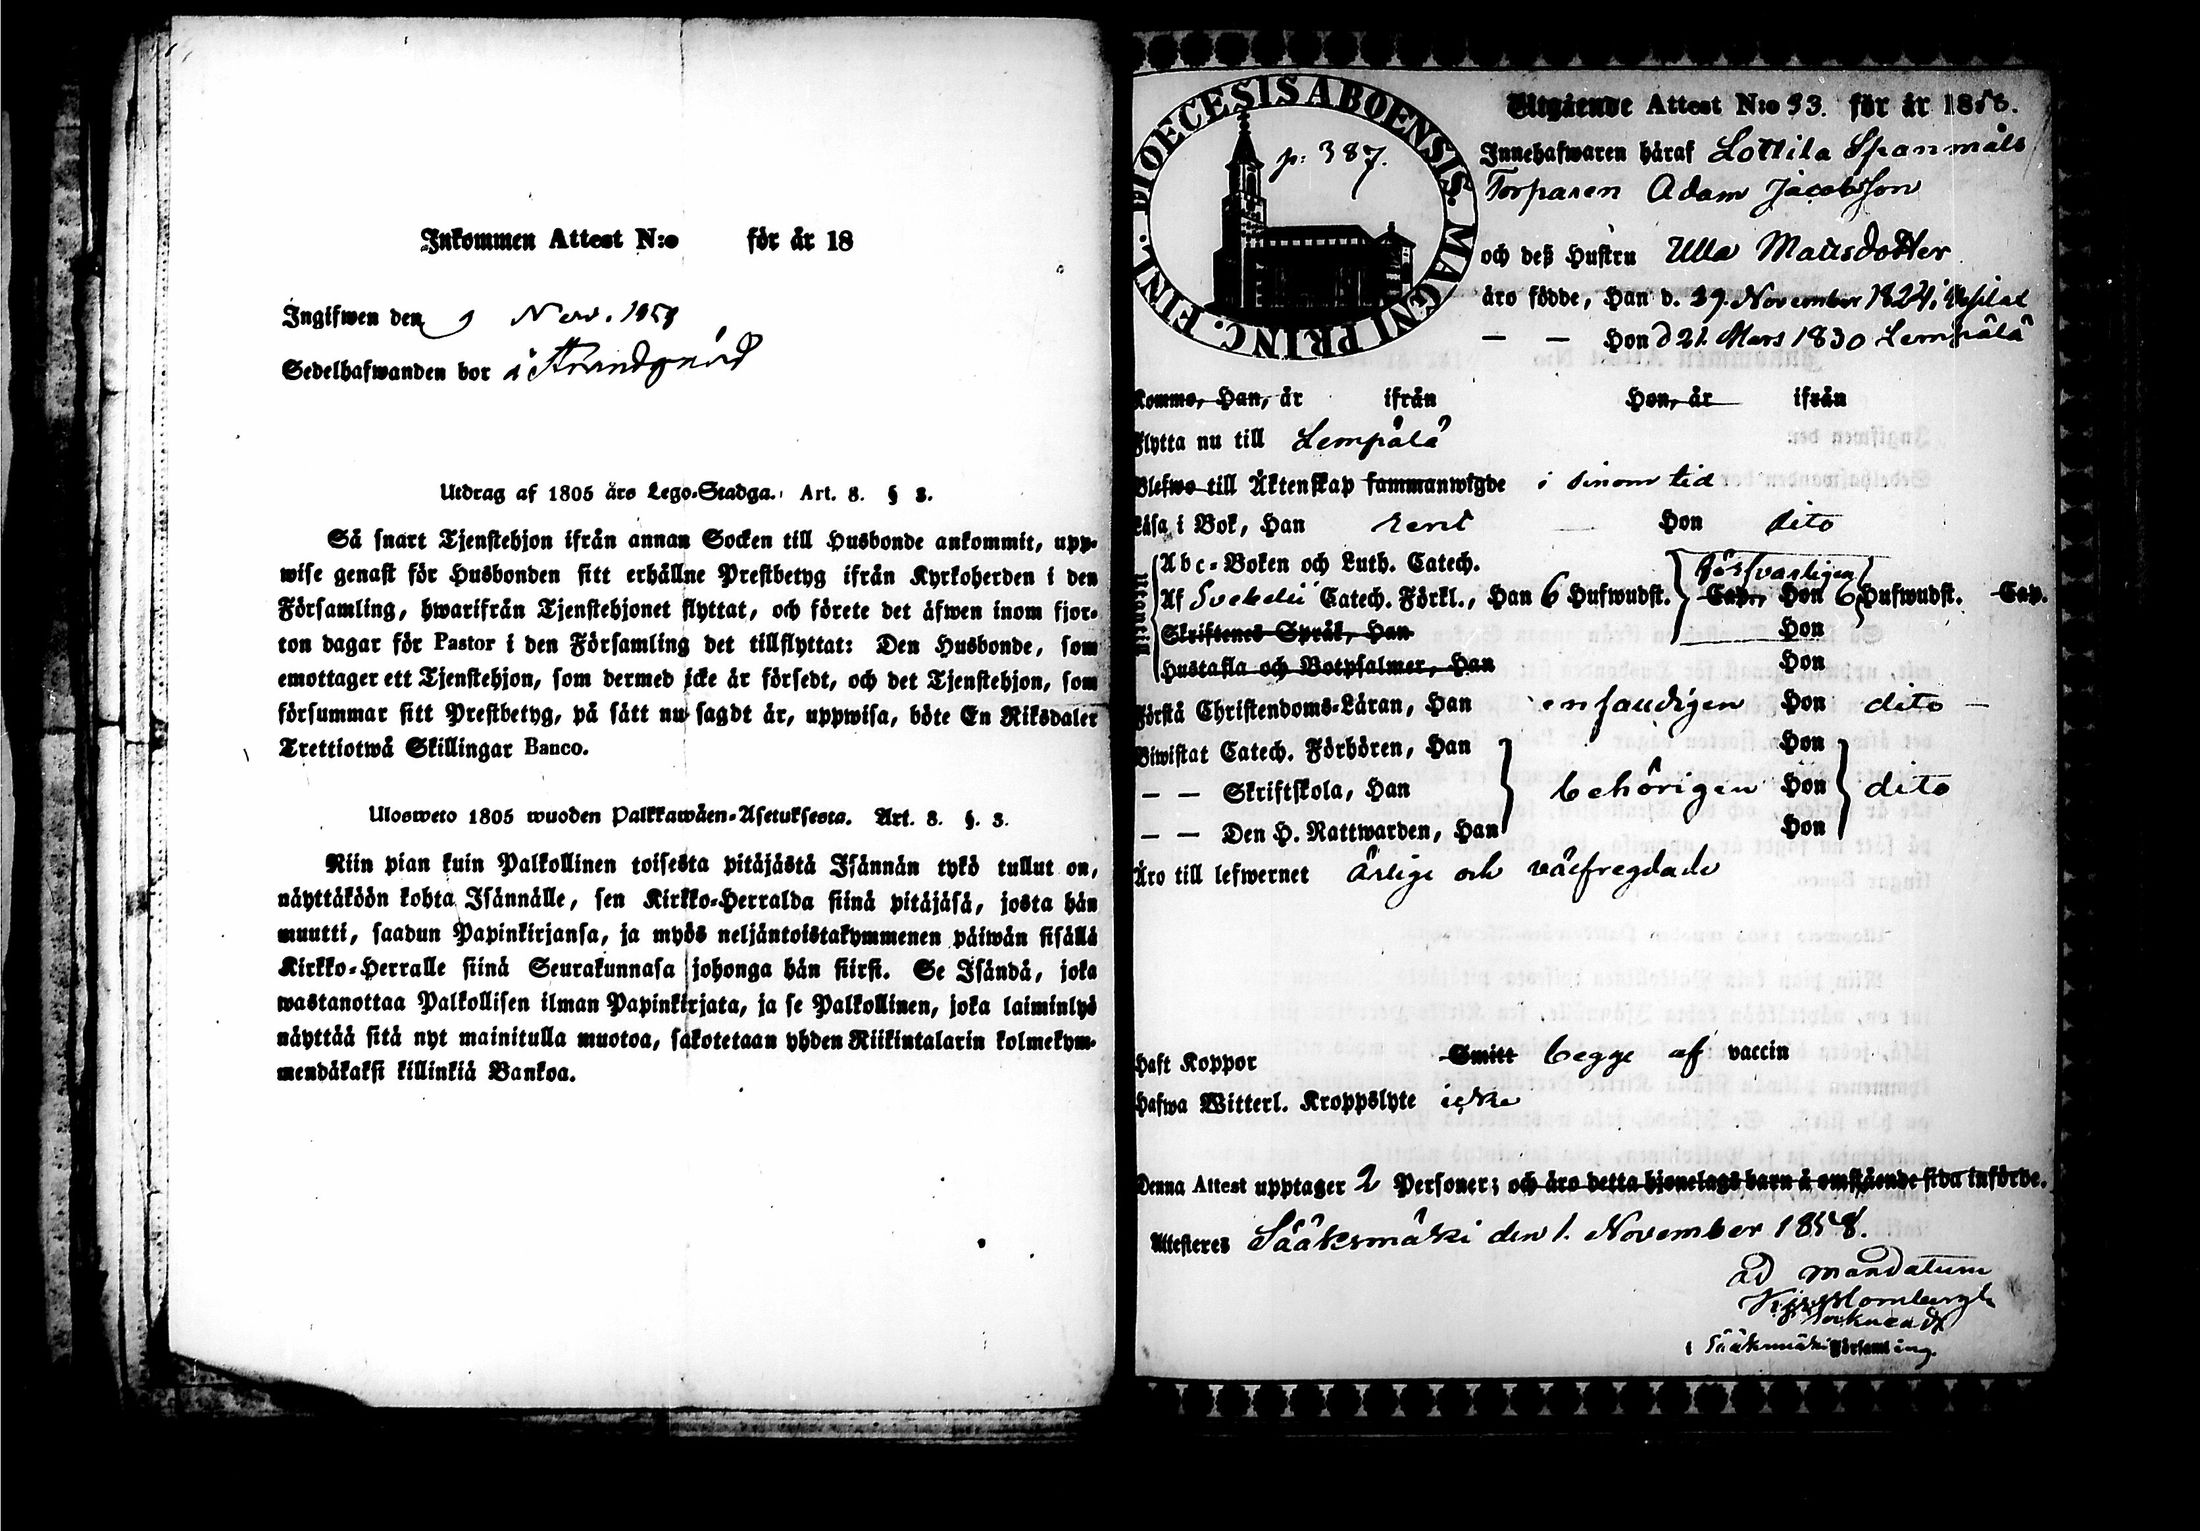 Inkommen Attest N:o för år 18
Ingifwen den 9 Nov. 1858
Sedelhafwanden bor å Strandgård
Utdrag af 1805 års Lego-Stadga. Art. 8. § 3.
Så snart Tjenstehjon ifrån annan Socken till Husbonde ankommit, upp-
wise genast för Husbonden sitt erhållne Prestbetyg ifrån Kyrkoherden i den
Församling, hwarifrån Tjenstehjonet flyttat, och förete det äfwen inom fjor-
ton dagar för Pastor i den Församling det tillflyttat: Den Husbonde, som
emottager ett Tjenstehjon, som dermed icke är försedt, och det Tjenstehjon, som
försummar sitt Prestbetyg, på sätt nu sagdt är, uppwisa, böte En Riksdaler
Trettiotwå Skillingar Banco.
Ulosweto 1805 wuoden Palkkawäen-Asetuksesta. Art. 8. §. 3.
Niin pian kuin Palkollinen toisesta pitäjästä Isännän tykö tullut on,
näyttäköön kohta Isännälle, sen Kirkko-Herralda siinä pitäjäsä, josta hän
muutti, saadun Papinkirjansa, ja myös neljäntoistakymmenen päiwän sisällä
Kirkko-Herralle siinä Seurakunnasa johonga hän siirsi. Se Isändä, joka
wastanottaa Palkollisen ilman Papinkirjata, ja se Palkollinen, joka laiminlyö
näyttää sitä nyt mainitulla muotoa, sakotetaan yhden Riikintalarin kolmekym-
mendäkaksi killinkiä Bankoa.
DIOECESIS ABOENSIS. MAGNI PRINC. FINL.
p: 387.
Utgående Attest N:o 93. för år 1858.
Innehafwaren häraf Lottila Spanmåls
Torparen Adam Jacobsson
och deß Hustru Ulla Matsdotter
äro födde, Han d. 29. November 1824 i
— — Hon d 21. Mars 1830 Lempälä
Komme, Han, år ifrån Hon, år ifrån
Flytta nu till Lempälä
Blefwo till Äktenskap sammanwigde i sinom tid
Läsa i Bok, Han rent — Hon dito
Utantill
Abc-Boken och Luth. Catech.
Af Svebelii Catech. Förkl., Han 6 Hufwudst. försvarligen Cap., Hon 6 Hufwudst. Cap.
Skriftenes Språk, Han Hon
Hustafla och Botpsalmer, Han Hon
Förstå Christendoms-Läran, Han enfaldigen Hon dito —
Biwistat Catech. Förhören, Han Hon
— — Skriftskola, Han behörigen Hon dito
— — Den H. Nattwarden, Han Hon
Äro till lefwernet ärlige och välfregdade
Haft Koppor Smitt begge af vaccin
Hafwa Witterl. Kroppslyte icke
Denna Attest upptager 2 Personer; och äro detta hjonelags barn å omstående sida införde.
Attesteras Sääksmäki den 1. November 1858.
ad mandatum
i Sääksmäki Församling.